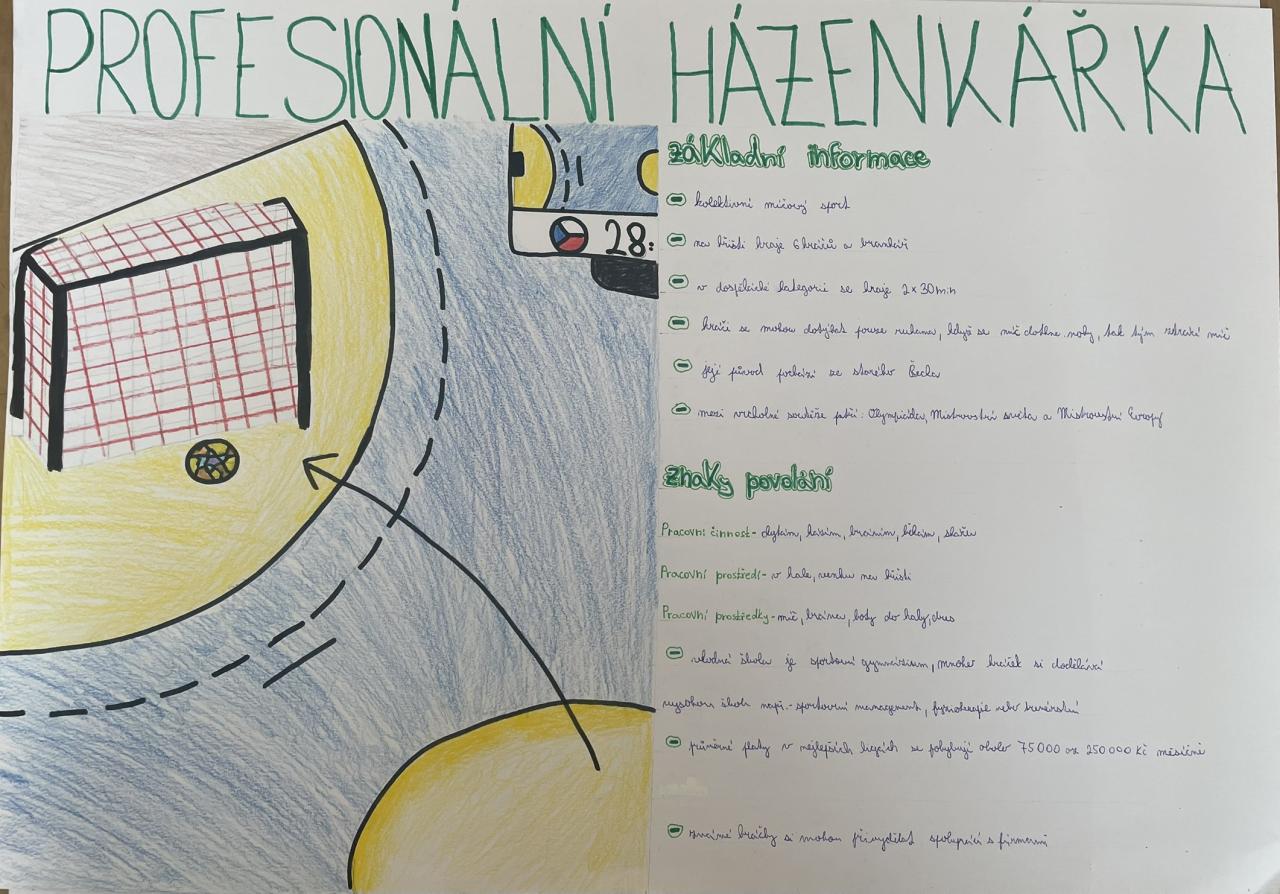 PROFESIONÁLNÍ HÁZENKÁŘKA
28:
základní informace
kolektivní míčový sport
na hřišti hraje 6 hráčů a brankář
v dospělácké kategorii se hraje 2×30min
hráči se mohou dotýkat pouze rukama, když se míč dotkne nohy, tak tým ztrácí míč
její původ pochází ze starého Řecka
mezi vrcholné soutěže patří: Olympiáda, Mistrovství světa a Mistrovství Evropy
znaky povolání
Pracovní činnost- chytám, házím, bráním, běhám, skáču
Pracovní prostředí- v hale, venku na hřišti
Pracovní prostředky- míč, brána, boty do haly, dres
vhodná škola je sportovní gymnázium, mnoho hráček si dodělává
vysokou školu např.- sportovní management, fyzioterapie nebo trenérství
průměrné platy v nejlepších ligách se pohybují okolo 75 000 až 250 000 Kč měsíčně
známé hráčky si mohou přivydělat spoluprací s firmami